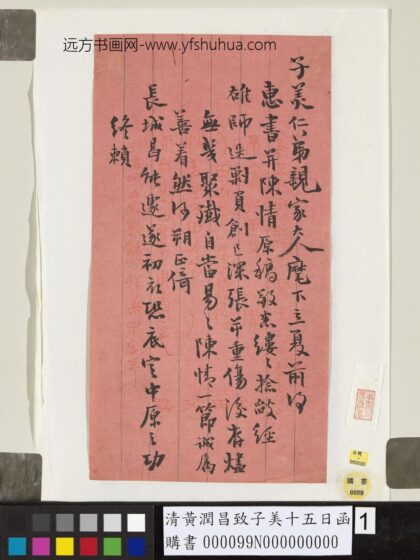 远方书画网-www.yfshuhua.com
子美仁弟親家大人麾下立夏前得
惠書并陳情原稿敬悉縷々捻敵經
雄師迭剿負創已深張重傷後存燼
無幾聚殲自當易々陳情一節誠屬
善着然河朔正倚
長城曷能遽遂初衣恐底定中原之功
終賴
000103
購書
0099
清黃潤昌致子美十五日函
購書 000099N000000000
1